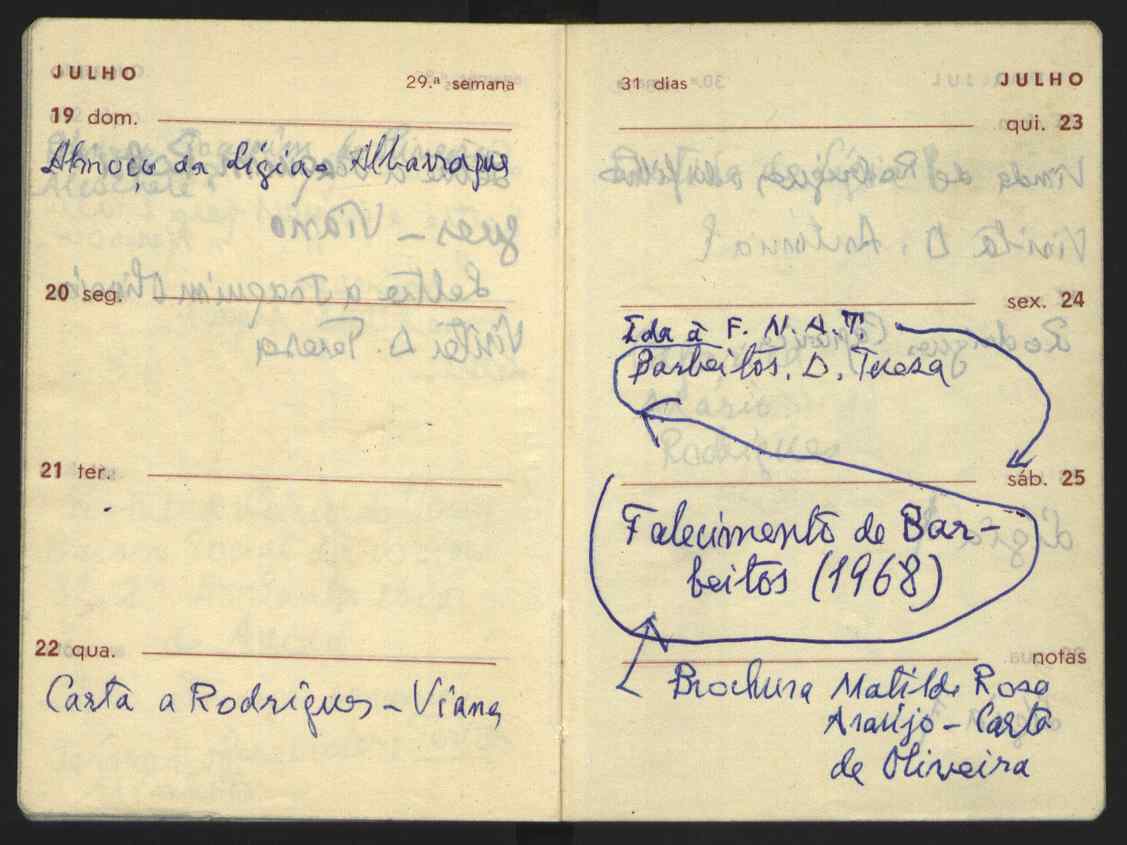 JULHO
29.ª semana
19 dom.
Almoço da Lígia - Albarraque
20 seg.
21 ter.
22 qua.
Carta a Rodrigues - Viana
31 dias
JULHO
qui. 23
sex. 24
Ida à F. N. A. T.
Barbeitos. D. Teresa
sáb. 25
Falecimento de Bar-
beitos (1968)
notas
Brochura Matilde Rosa
Araújo - Carta
de Oliveira